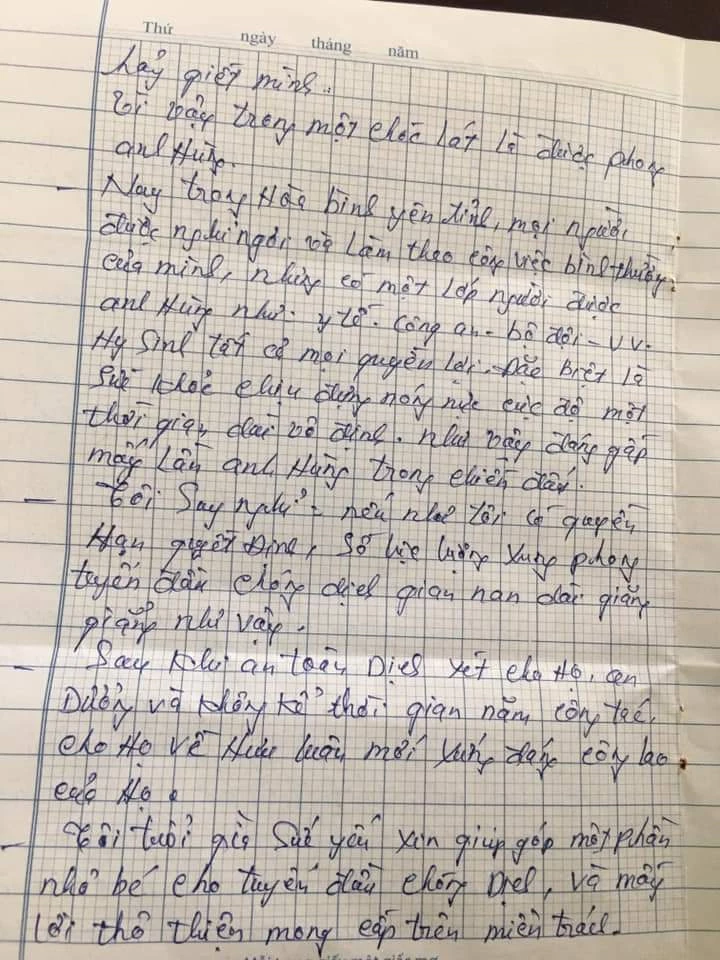 Thứ ngày tháng năm
hảy giết mình.
Vì vậy trong một chốc lát là được phong
anh Hùng.
- Nay trong Hòa bình yên tỉnh, mọi người
được nghỉ ngơi và làm theo công việc bình thường
của mình, nhưng có một lớp người được
anh Hùng như. y tế. Công an - bộ đội - VV.
Hy Sinh tất cả mọi quyền lợi. Đặc biệt là
Sức khỏe chịu đựng nóng nực cực độ một
thời gian dài vô định. như vậy đáng gấp
mấy lần anh Hùng trong chiến đấu.
- Tôi Say nghỉ = nếu như tôi có quyền
Hạn quyết Định, Số lực lượng xung phong
tuyến đầu chống dịch gian nan dài giẵng
giẵng như vậy.
- Say Khi an toàn Dịch xét cho Họ, an
Dưởng và không kể thời gian năm công tác,
cho Họ về Hưu luôn mới xứng đáng công lao
của Họ.
- Tôi tuổi già Sức yếu xin giúp góp một phần
nhỏ bé cho tuyến đầu chống Dịch, và mấy
lời thô thiện mong cấp trên miễn trách.